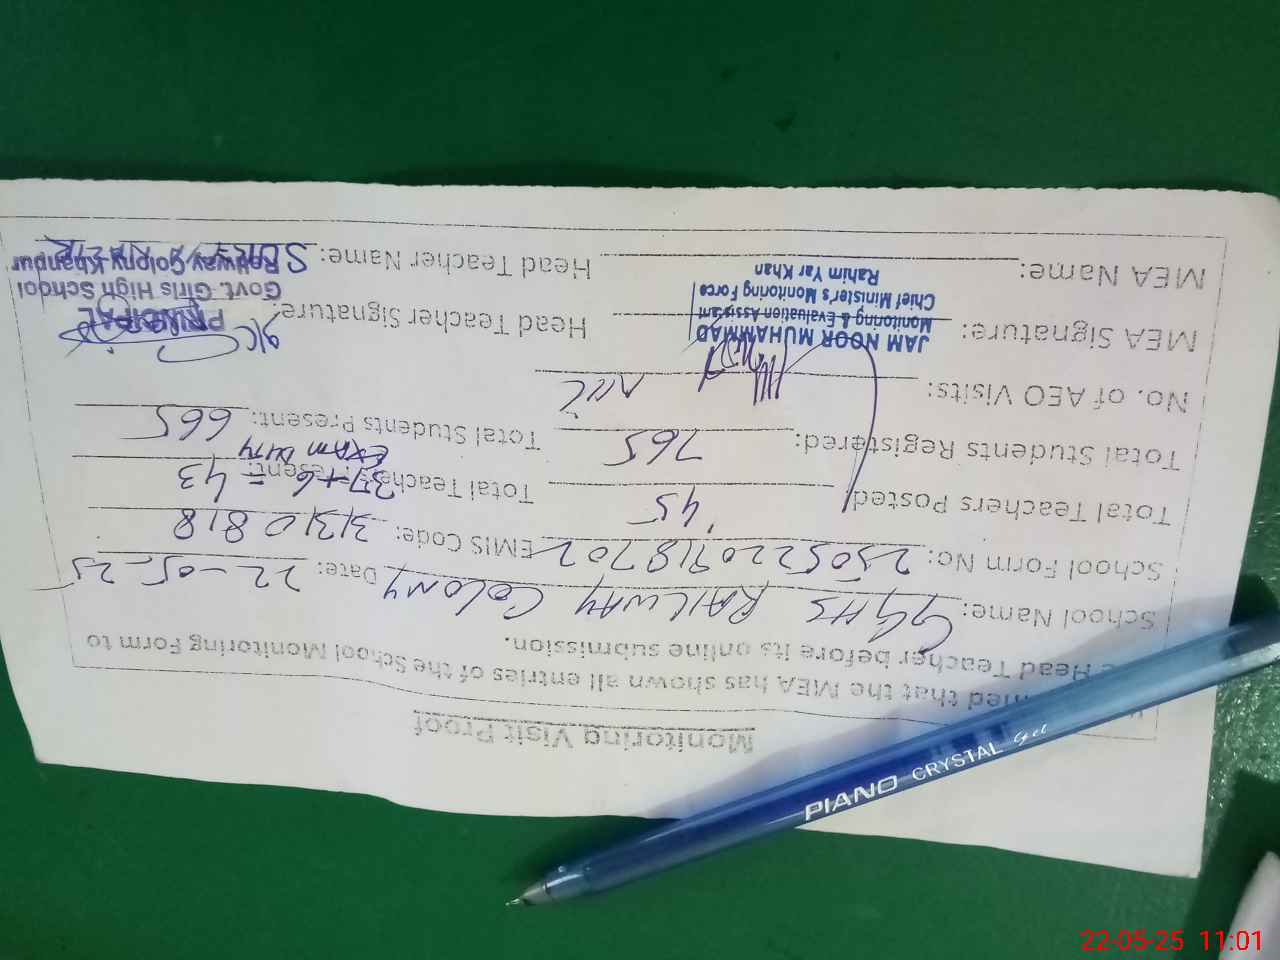 Monitoring Visit Proof
that the MEA has shown all entries of the School Monitoring Form to
Head Teacher before its online submission.
School Name: GGHS RAILWAY COLONY Date: 22-05-25
School Form No: 2505220918702 EMIS Code: 31310818
Total Teachers Posted 45 Total Teachers Present: 37+6 = 43
EXAM DUTY
Total Students Registered: 765 Total Students Present: 665
No. of AEO Visits: NIL
MEA Signature: Head Teacher Signature:
JAM NOOR MUHAMMAD
Monitoring & Evaluation Assistant
Chief Minister's Monitoring Force
Rahim Yar Khan
I/C
PRINCIPAL
Govt. Girls High School
Railway Colony Khanpur
MEA Name: Head Teacher Name:
PIANO CRYSTAL Gel
22-05-25 11:01